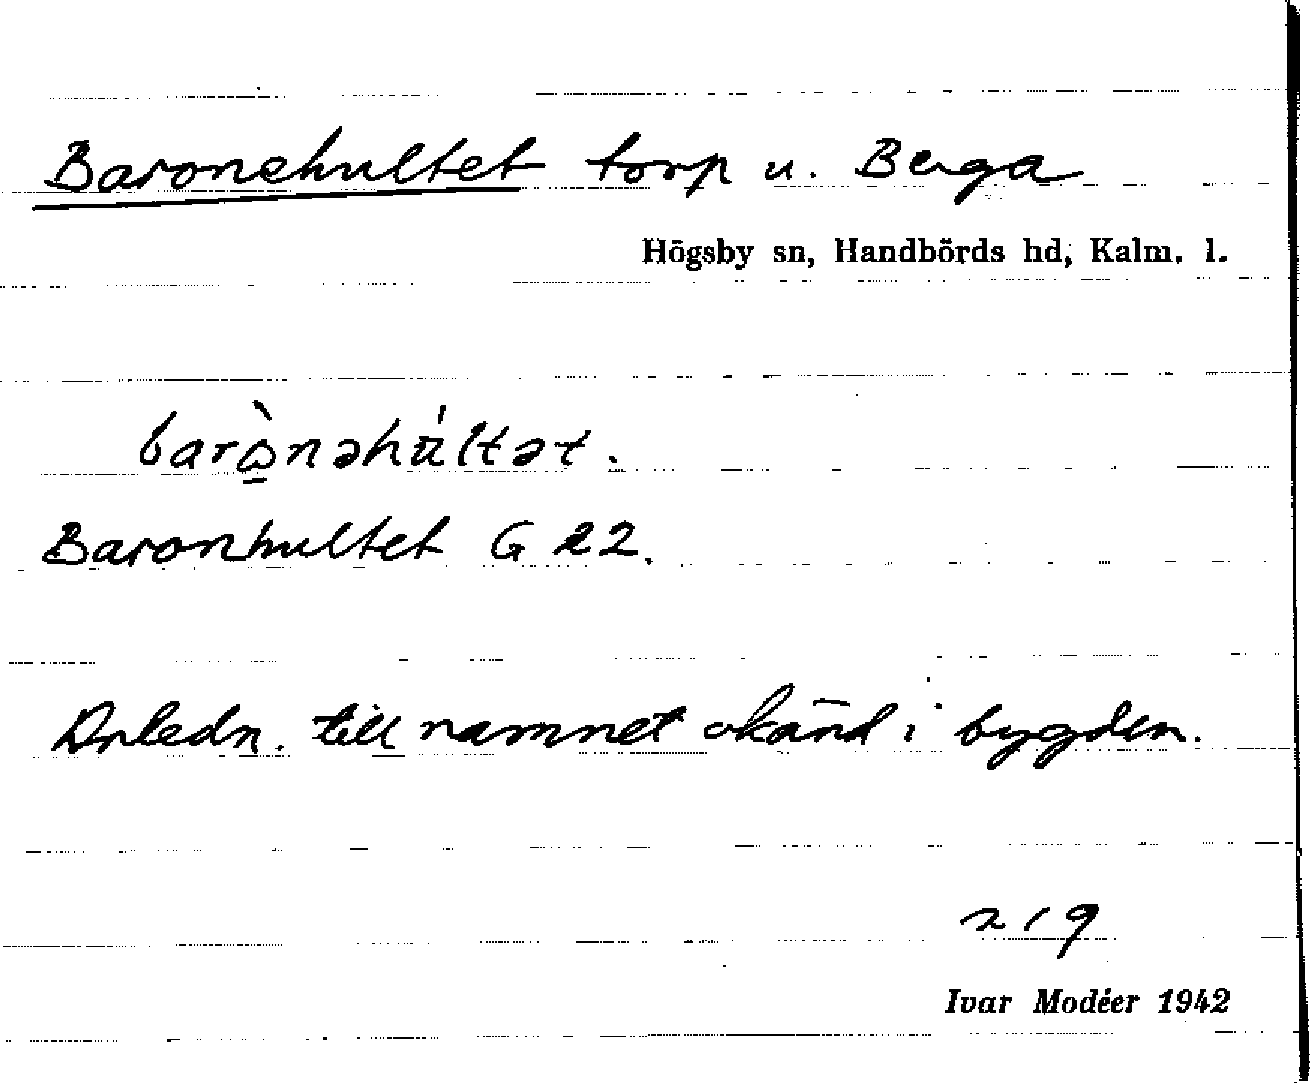 Baronehultet torp u. Berga
Högsby sn, Handbörds hd, Kalm. l.
barò̱nəhu̇́ltət.
Baronhultet G 22.
Anledn. till namnet okänd i bygden.
219
Ivar Modéer 1942